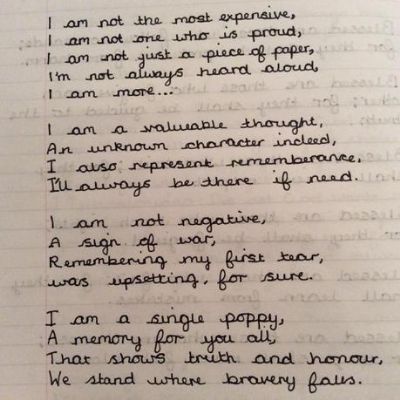 I am not the most expensive,
I am not one who is proud,
I am not just a piece of paper,
I'm not always heard aloud,
I am more...
I am a valuable thought,
An unknown character indeed,
I also represent rememberance,
I'll always be there if need.
I am not negative,
A sign of war,
Remembering my first tear,
was upsetting, for sure.
I am a single poppy,
A memory for you all,
That shows truth and honour,
We stand where bravery falls.